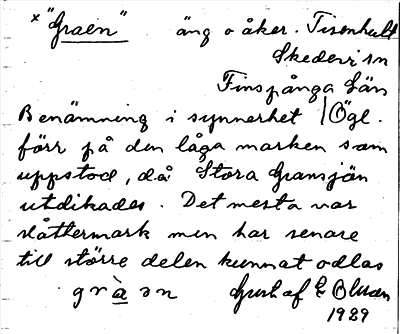 x "Graen" äng o åker. Tisenhult
Skedevi sn
Finspånga Län
Benämning i synnerhet / Ögl.
förr på den låga marken som
uppstod, då Stora Gransjön
utdikades. Det mesta var
slåttermark men har senare
till större delen kunnat odlas
g r à ə n Gustaf E Olsson
1929